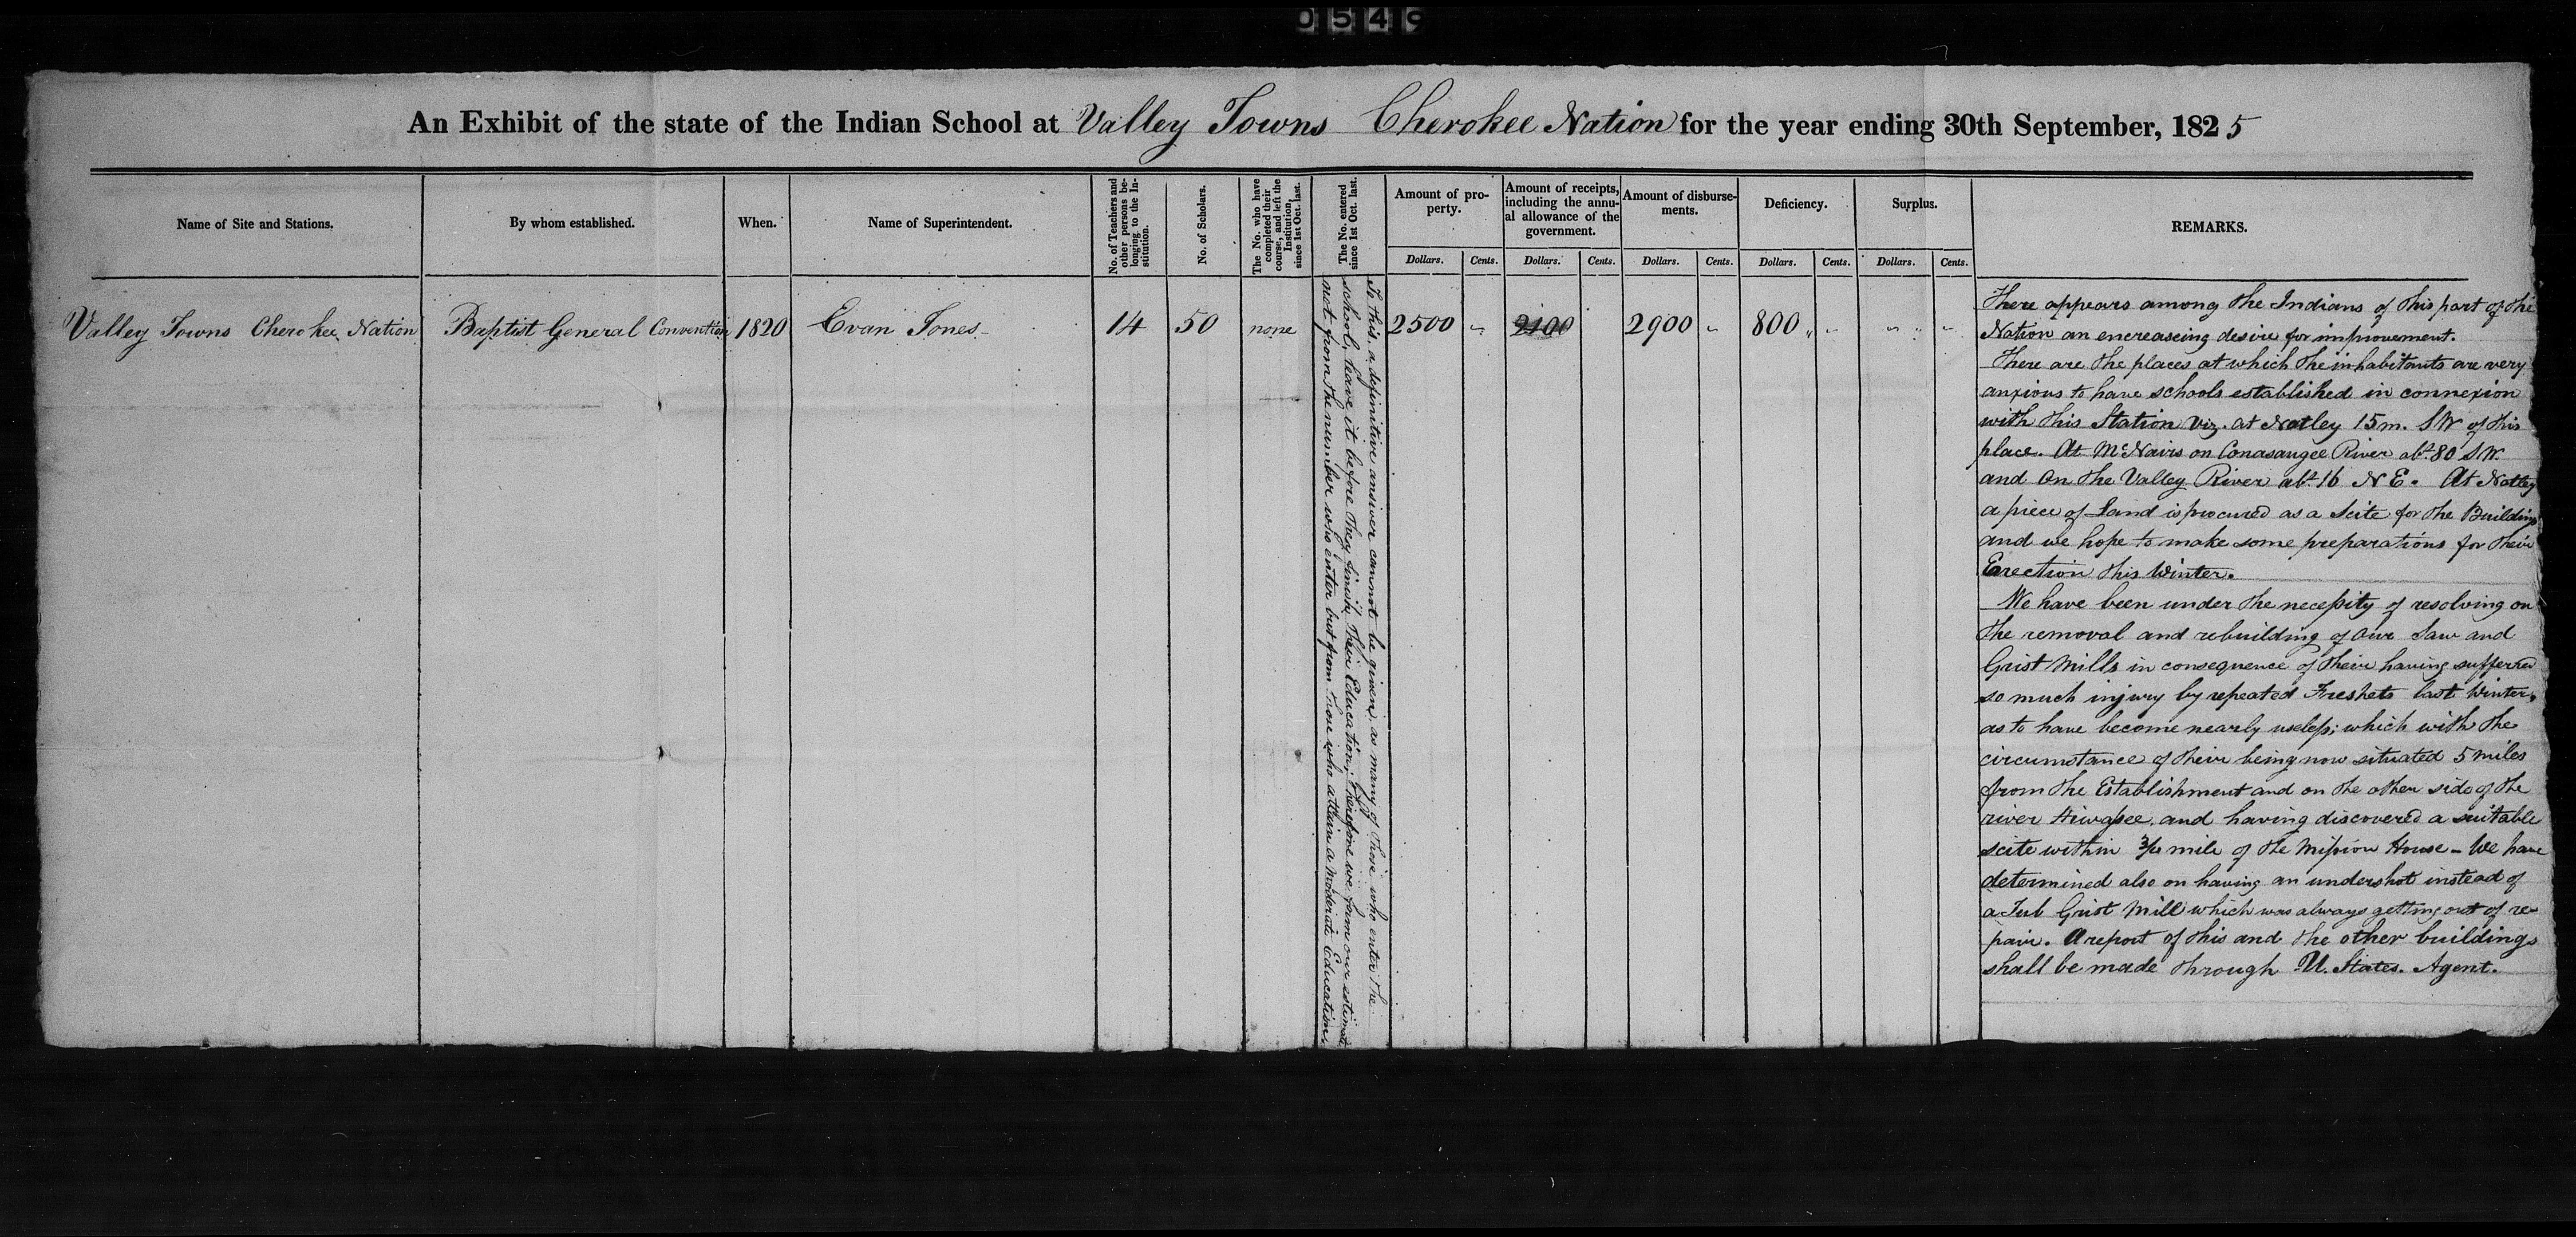 0549
An Exhibit of the state of the Indian School at Valley Towns Cherokee Nation for the year ending 30th September, 1825
Name of Site and Stations.
By whom established.
When.
Name of Superintendent.
No. of Teachers and
other persons be-
longing to the In-
stitution.
No. of Scholars.
The No. who have
completed their
course, and left the
Institution,
since 1st Oct. last.
The No. entered
since 1st Oct. last.
Amount of pro-
perty.
Dollars. Cents.
Amount of receipts,
including the annu-
al allowance of the
government.
Dollars. Cents.
Amount of disburse-
ments.
Dollars. Cents.
Deficiency.
Dollars. Cents.
Surplus.
Dollars. Cents.
REMARKS.
Valley Towns Cherokee Nation
Baptist General Convention
1820
Evan Jones
14
50
none
To this, a definitive answer cannot be given, as many of those who enter the
school, leave it before they finish their Education; therefore we form our estimate
not from the number who enter but from those who attain a moderate Education
2500 "
2100
2900 "
800 " "
" " "
There appears among the Indians of this part of the
Nation an encreaseing desire for improvement.
There are the places at which the inhabitants are very
anxious to have schools established in connexion
with this Station viz. at Notley 15 m. SW of this
place. At McNairs on Conasaugee River abt. 80 SW.
and On the Valley River abt. 16 N E. At Notley
a piece of Land is procured as a Scite for the Buildings
and we hope to make some preparations for their
Erection this Winter.
We have been under the necessity of resolving on
the removal and rebuilding of our Saw and
Grist Mills in consequence of their having sufferred
so much injury by repeated Freshets last Winter,
as to have become nearly useless; which with the
circumstance of their being now situated 5 miles
from the Establishment and on the other side of the
river Hiwassee, and having discovered a suitable
scite within 3/4 mile of the Mission House - We have
determined also on having an undershot instead of
a Tub Grist Mill which was always getting out of re-
pair. A report of this and the other buildings
shall be made through U. States. Agent.